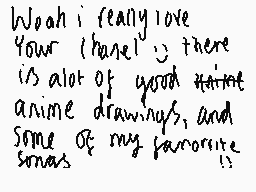 Woah i really love
your chanel :) there
is alot of good
anime drawings, and
some of my favorite
sonas !!